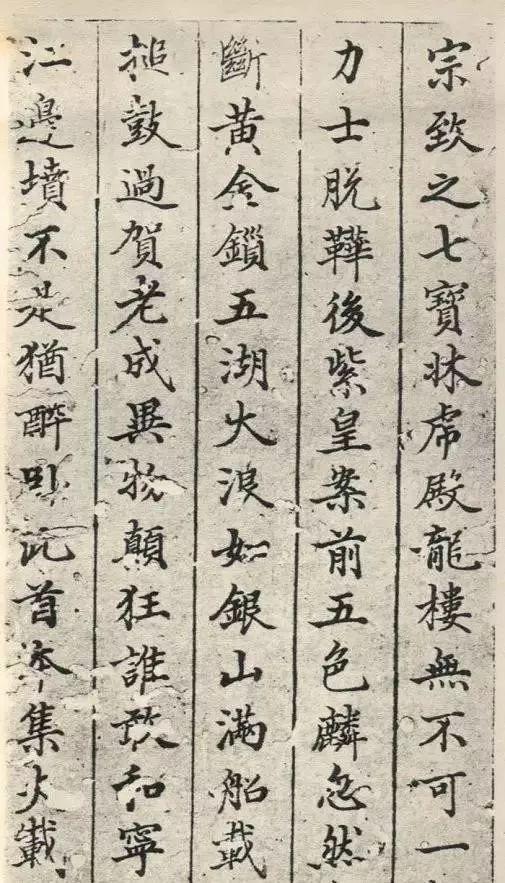 宗致之七寶牀虎殿龍樓無不可一
力士脫鞾後紫皇案前五色麟忽然
斷黃金鎖五湖大浪如銀山滿船載
搥鼓過賀老成異物顛狂誰敢和寧
江邊墳不是猶醉臥此首本集失載